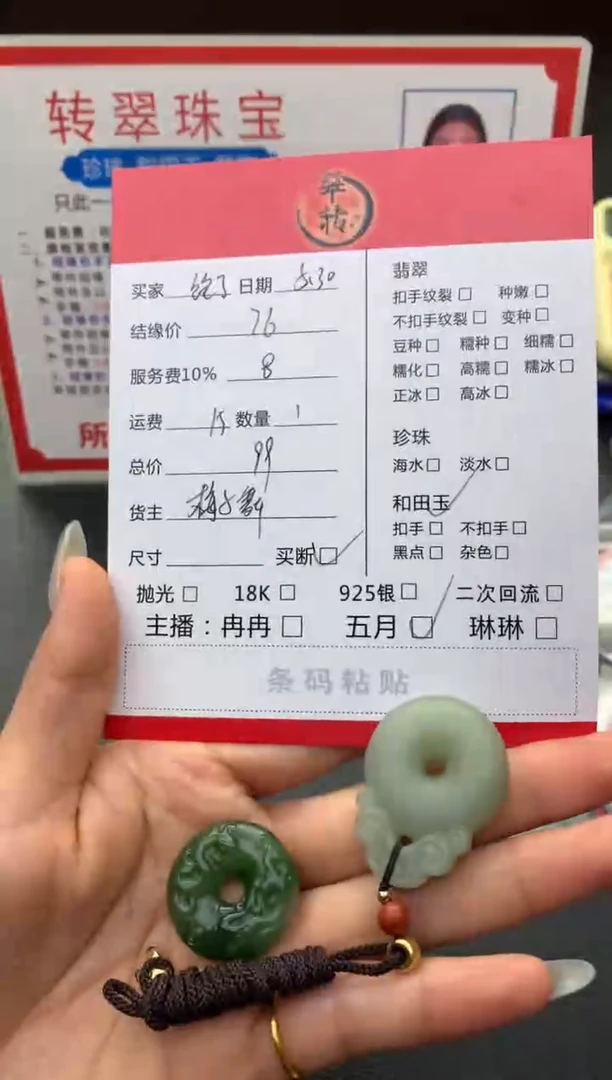 转翠珠宝
只此一
翠转
买家 日期 5.30
结缘价 76
服务费10% 8
运费 15 数量 1
总价 99
货主
尺寸 买断☐
翡翠
扣手纹裂☐ 种嫩☐
不扣手纹裂☐ 变种☐
豆种☐ 糯种☐ 细糯☐
糯化☐ 高糯☐ 糯冰☐
正冰☐ 高冰☐
珍珠
海水☐ 淡水☐
和田玉
扣手☐ 不扣手☐
黑点☐ 杂色☐
抛光☐ 18K☐ 925银☐ 二次回流☐
主播：冉冉☐ 五月☐ 琳琳☐
条码粘贴